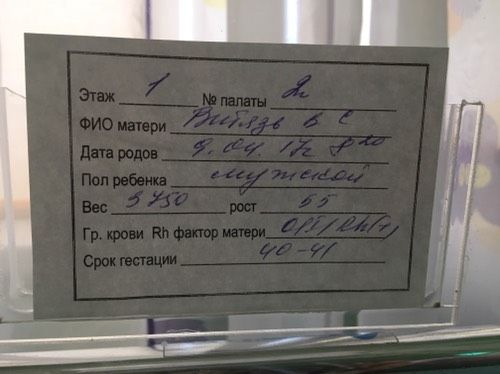 Этаж 1 № палаты 2
ФИО матери Витязь В С
Дата родов 9.04.17г 8 20
Пол ребенка мужской
Вес 3750 рост 55
Гр. крови Rh фактор матери O(I) Rh(+)
Срок гестации 40-41